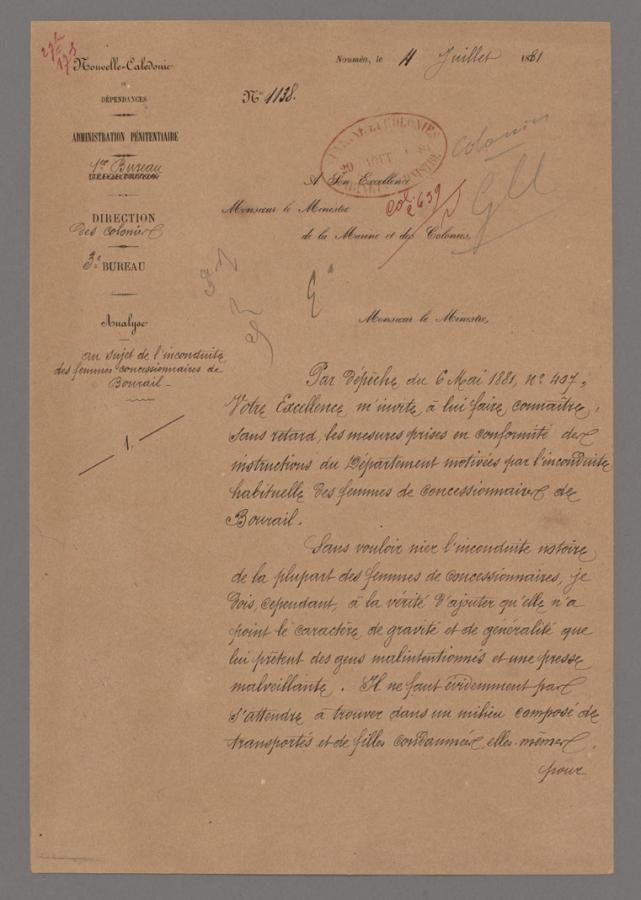 Nouvelle-Calédonie
ET
DÉPENDANCES
ADMINISTRATION PÉNITENTIAIRE
1er Bureau
DIRECTION
des Colonies
3e BUREAU
Analyse
au sujet de l'inconduite
des femmes concessionnaires de
Bourail -
1.
Nouméa, le 4 Juillet 1881
N° 1138.
Colonies
A Son Excellence
Monsieur le Ministre
de la Marine et des Colonies,
Monsieur le Ministre,
Par Dépêche du 6 Mai 1881, n° 407,
Votre Excellence m'invite à lui faire connaître,
sans retard, les mesures prises en conformité des
instructions du Département motivées par l'inconduite
habituelle des femmes de concessionnaires de
Bourail.
Sans vouloir nier l'inconduite notoire
de la plupart des femmes de concessionnaires, je
dois, cependant, à la vérité d'ajouter qu'elle n'a
point le caractère de gravité et de généralité que
lui prêtent des gens malintentionnés et une presse
malveillante. Il ne faut évidemment pas
s'attendre à trouver dans un milieu composé de
transportés et de filles condamnées elles-mêmes,
pour